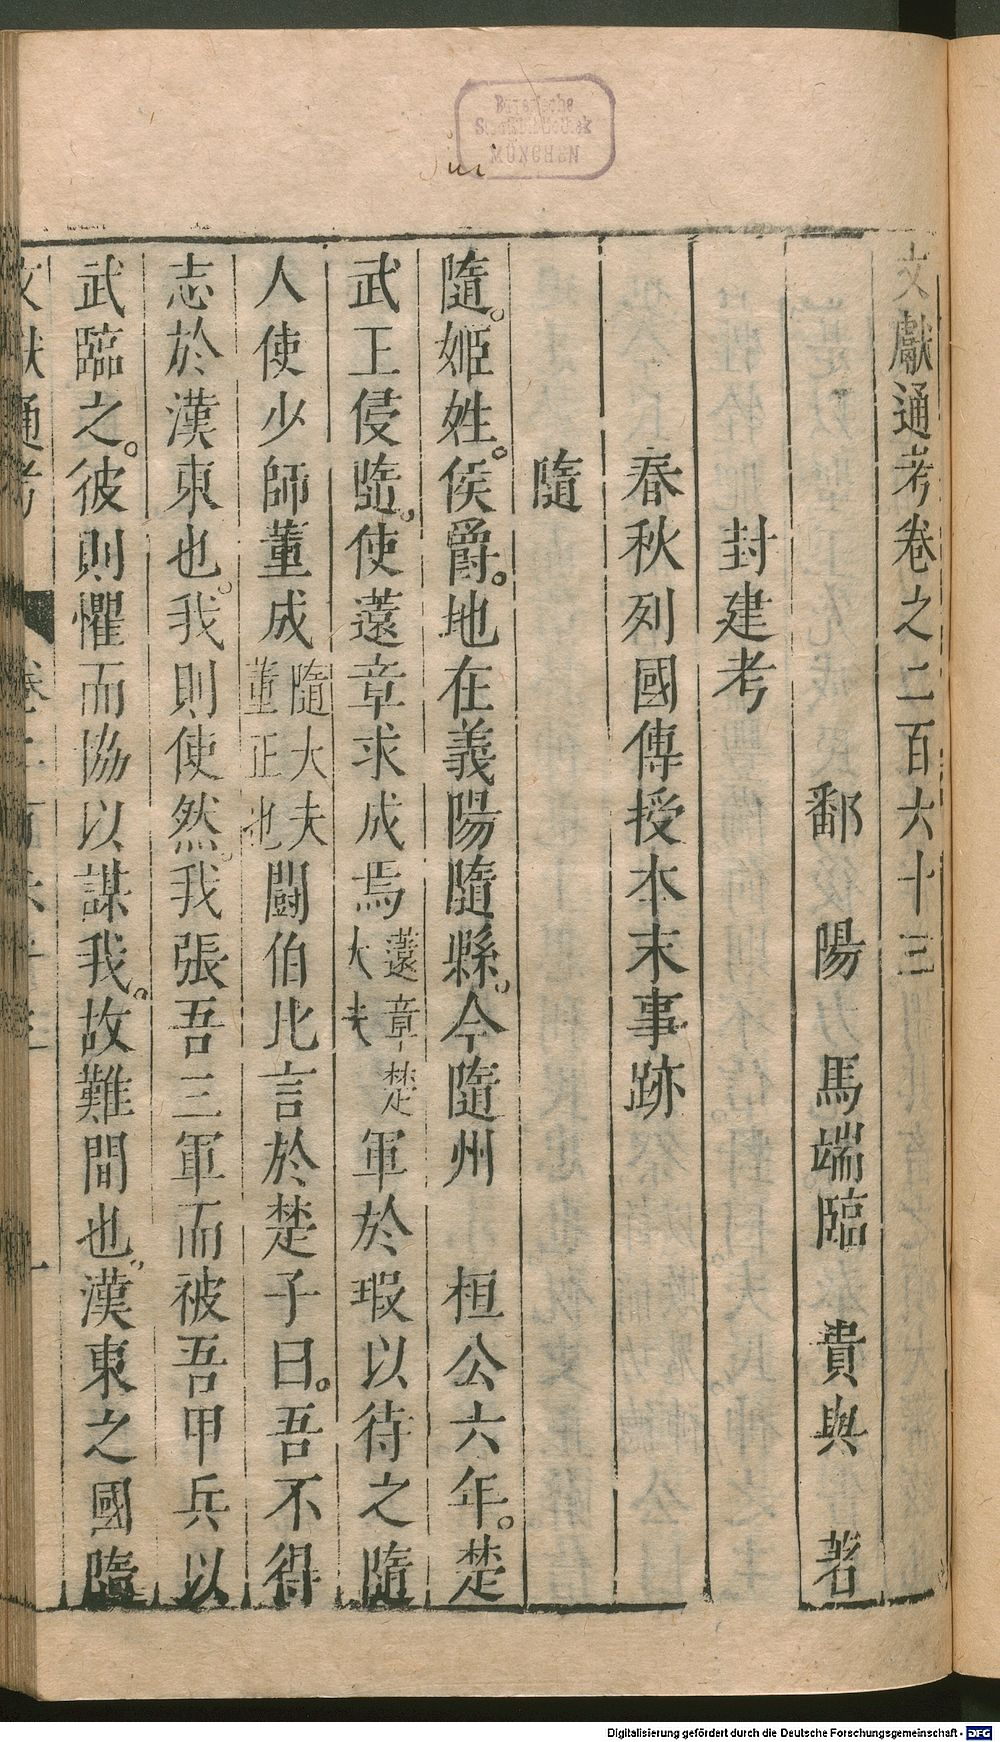 文獻通考卷之二百六十三
鄱陽馬端臨貴與著
封建考
春秋列國傳授本末事跡
隨
隨。姬姓。侯爵。地在義陽隨縣。今隨州　桓公六年。楚
武王侵隨。使薳章求成焉薳章楚大夫軍於瑕以待之隨
人使少師董成隨大夫董正也鬬伯比言於楚子曰。吾不得
志於漢東也。我則使然。我張吾三軍而被吾甲兵以
武臨之。彼則懼而協以謀我。故難間也。漢東之國隨
文獻通考
MÜNCHEN
Digitalisierung gefördert durch die Deutsche Forschungsgemeinschaft - DFG